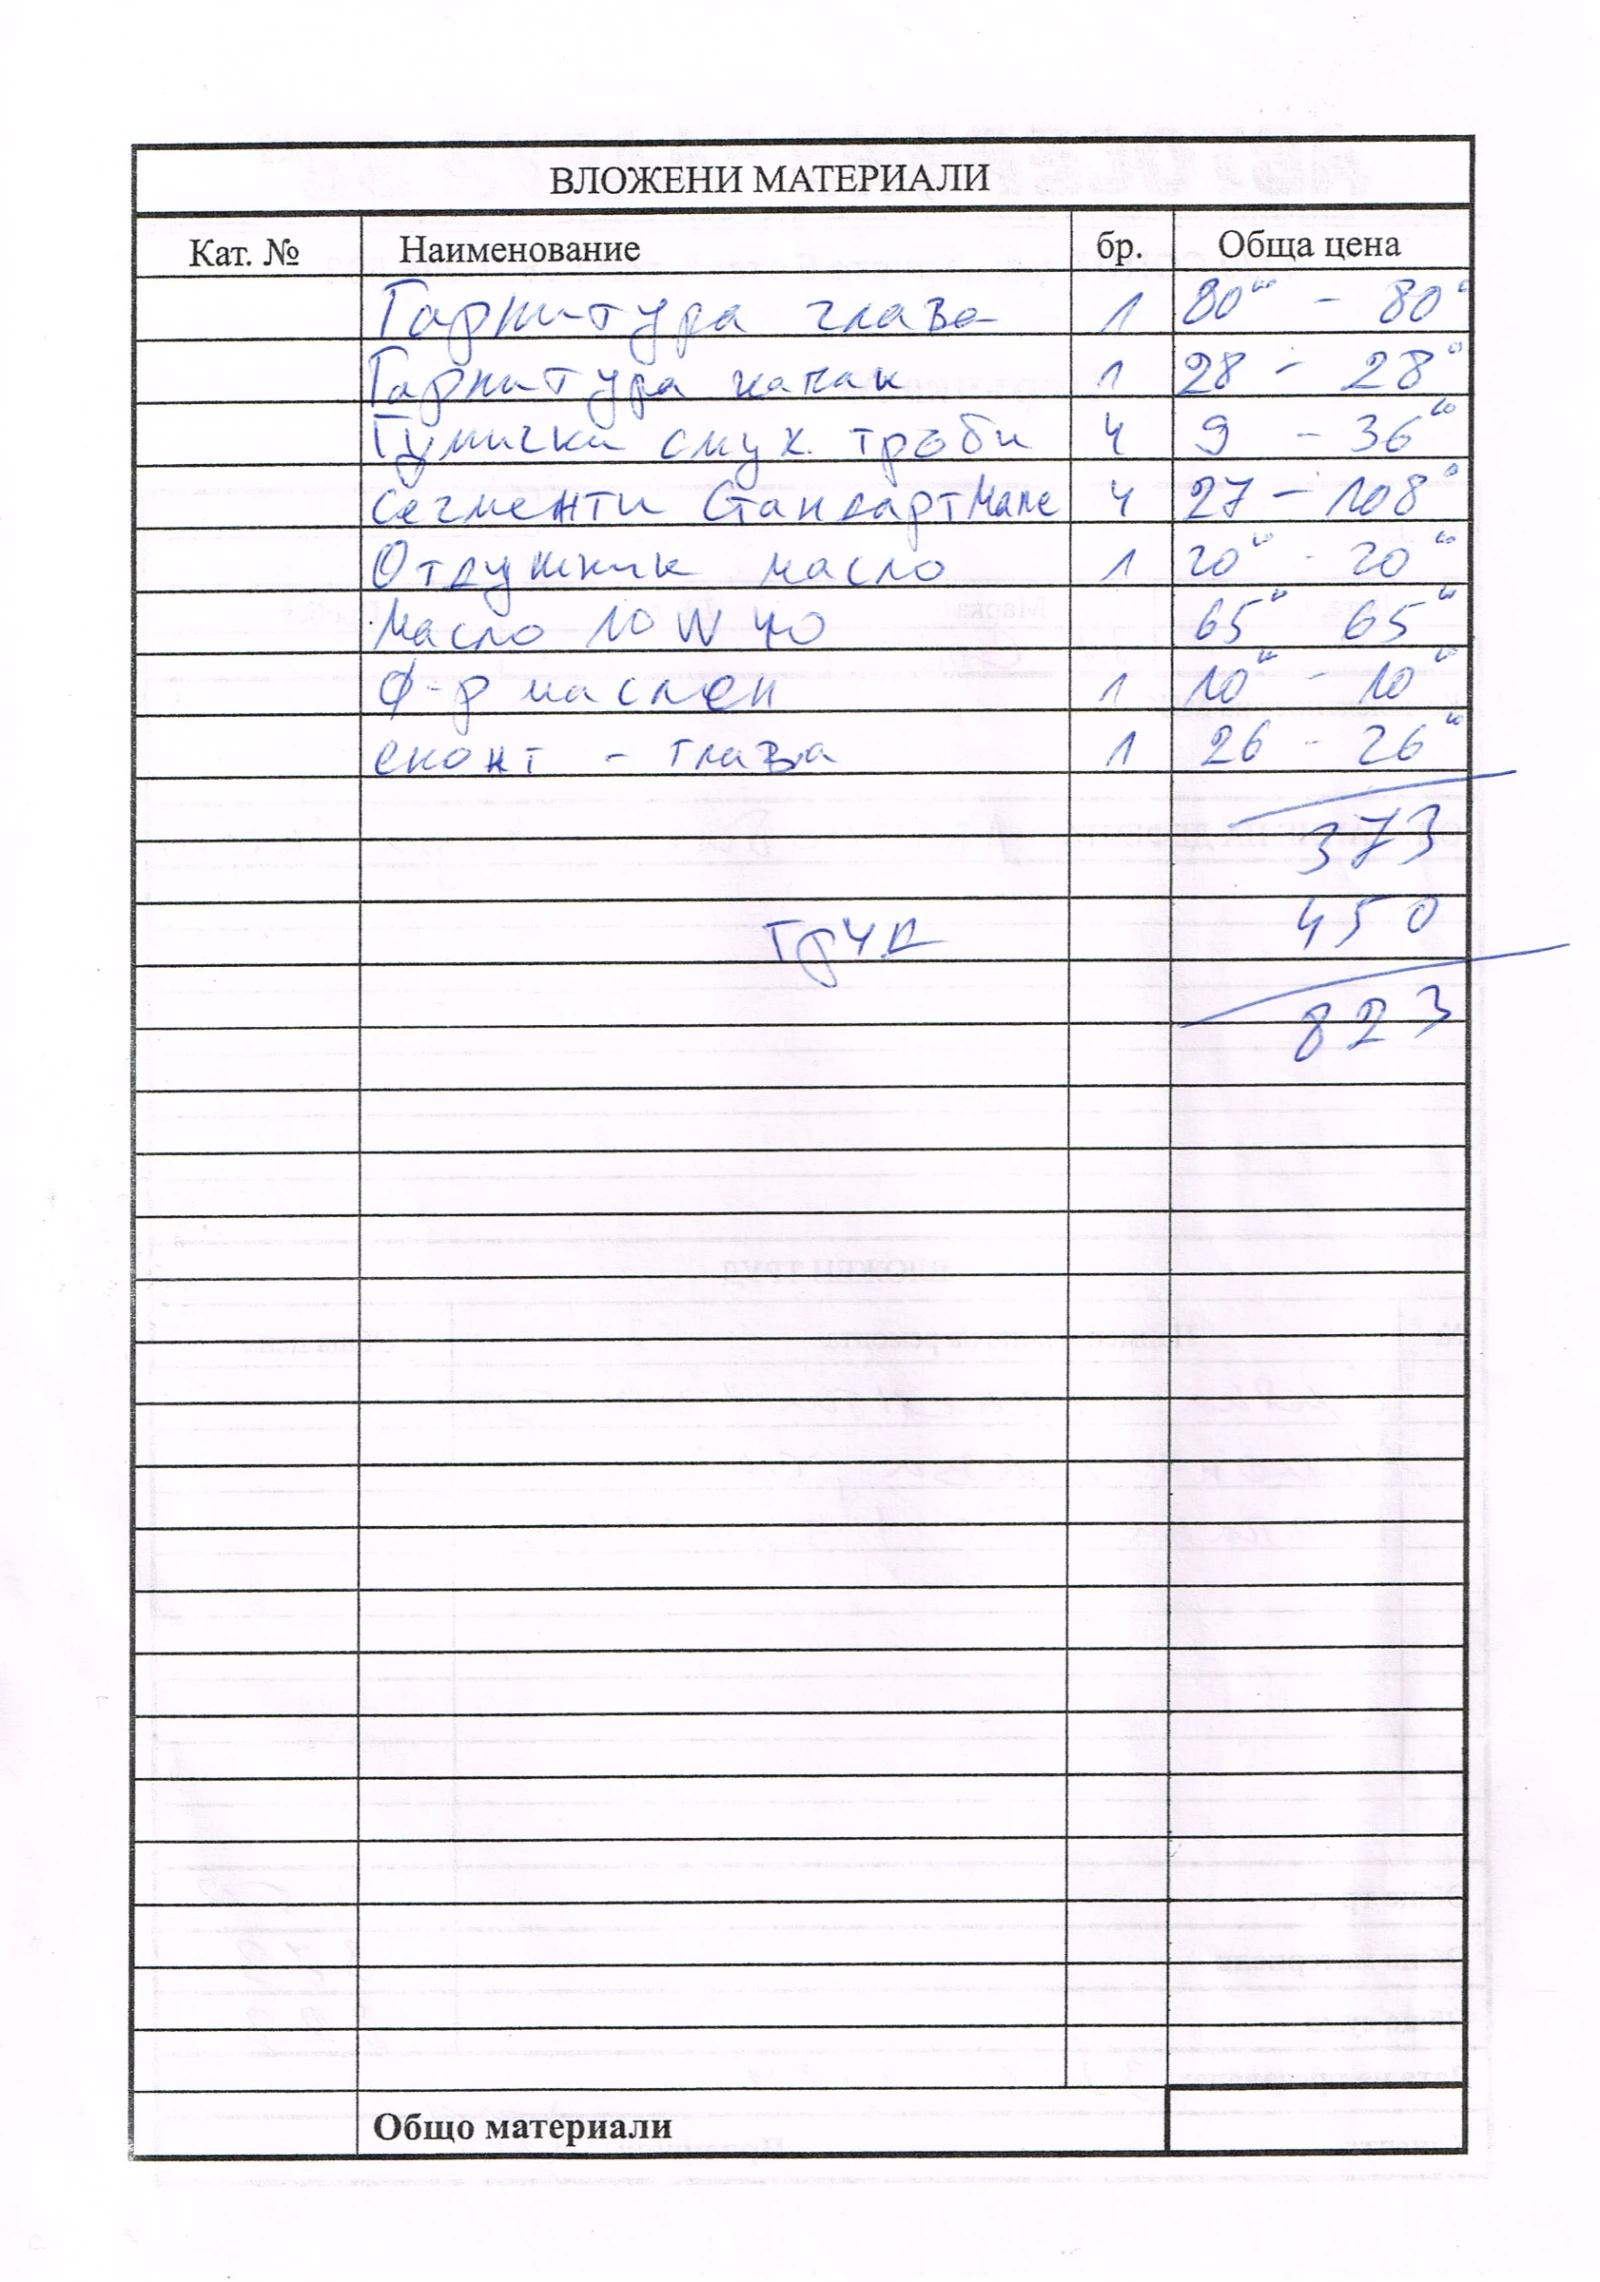 ВЛОЖЕНИ МАТЕРИАЛИ
Кат. № Наименование бр. Обща цена
Гарнитура глава 1 80°° - 80°
Гарнитура капак 1 28 - 28°
Гумички смук. тръби 4 9 - 36°°
Сегменти Стандарт 4 27 - 108°
Отдушник масло 1 20°° - 20°°
Масло 10W40 65°° 65°°
ф-р маслен 1 10°° - 10°°
- глава 1 26 - 26°°
373
труд 450
823
Общо материали